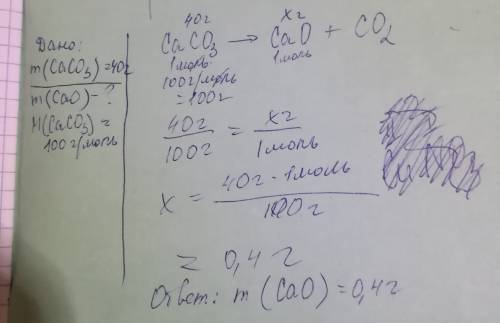 Дано:
m(CaCO₃)=40г
m(CaO)-?
M(CaCO₃)=
100г/моль
40г xг
CaCO₃ → CaO + CO₂
1моль 1моль
100г/моль
=100г
40г/100г = xг/1моль
x = 40г · 1моль/100г
= 0,4г
Ответ: m(CaO)=0,4г